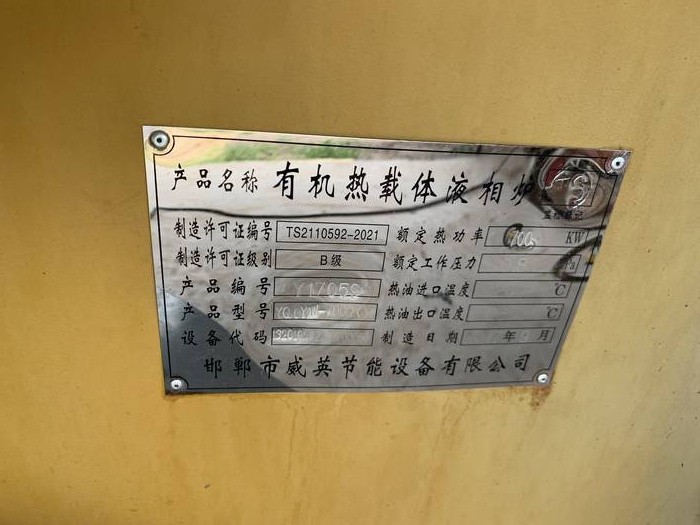 产品名称 有机热载体液相炉
制造许可证编号 TS2110592-2021 额定热功率 KW
制造许可证级别 B级 额定工作压力
产品编号 热油进口温度 ℃
产品型号 热油出口温度 ℃
设备代码 制造日期 年 月
邯郸市威英节能设备有限公司